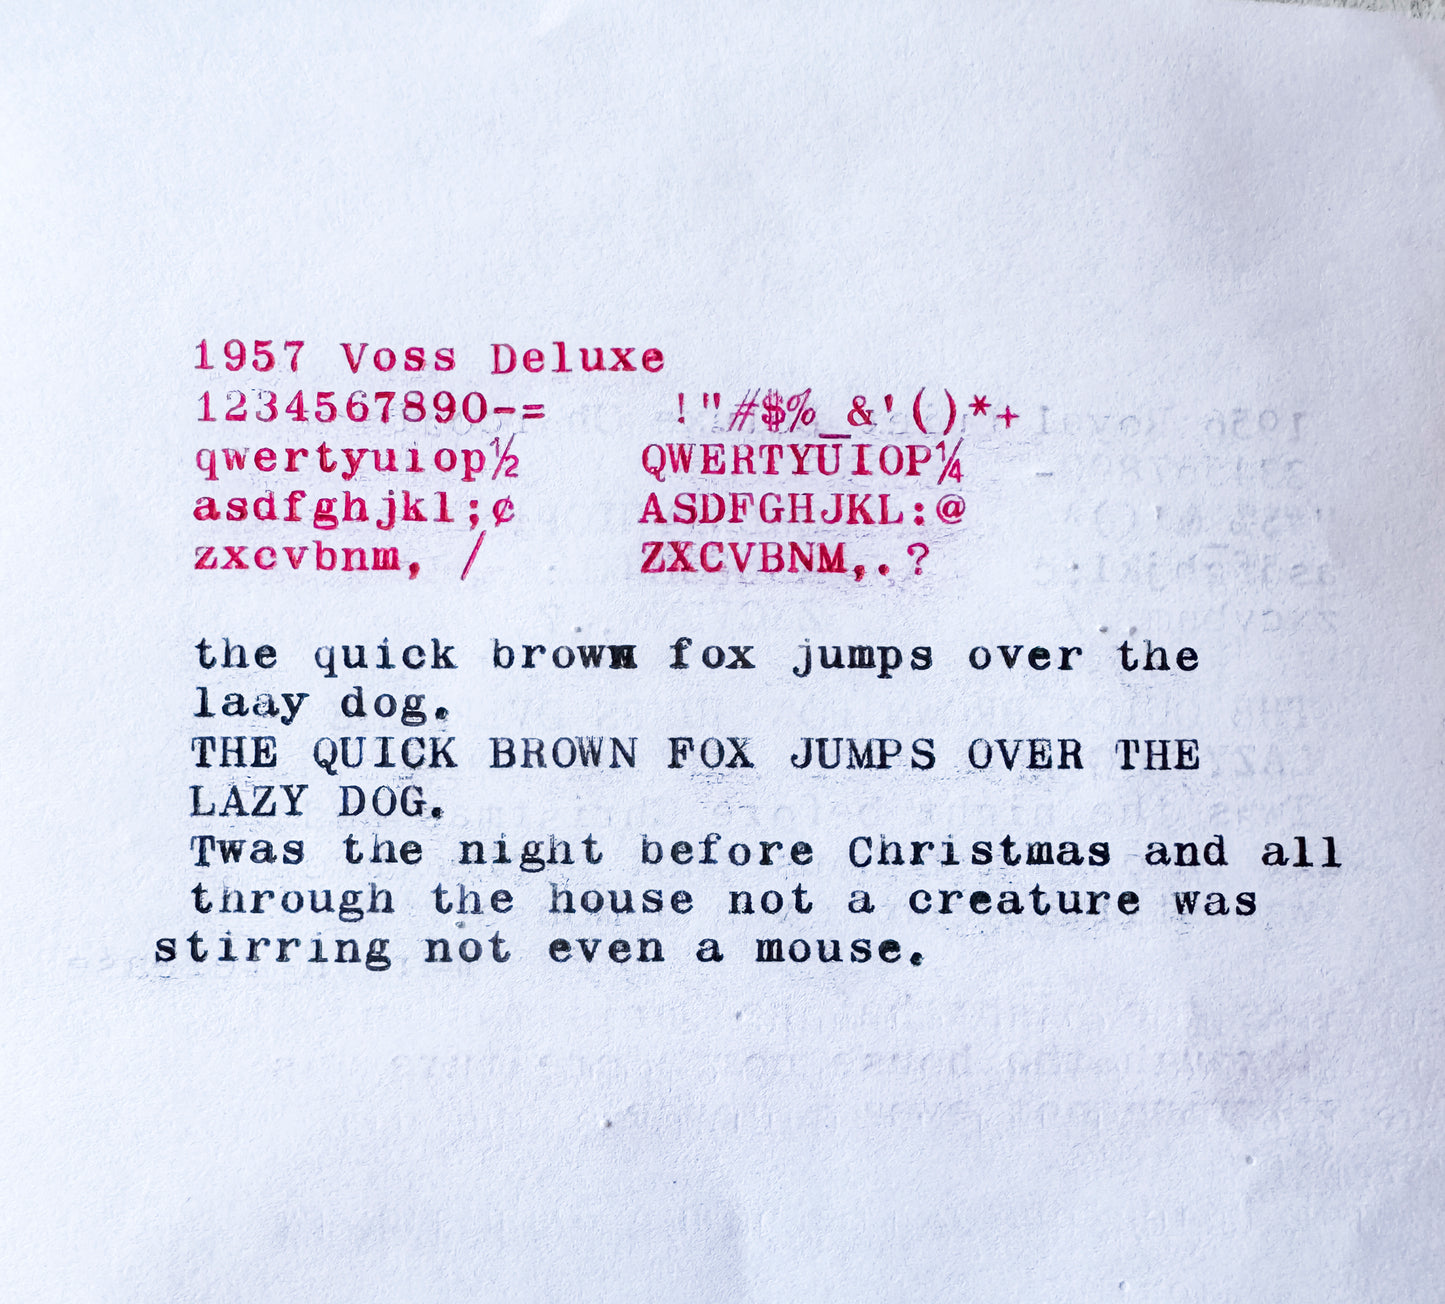 1957 Voss Deluxe
1234567890-= !"#$%_&'()*+
qwertyuiop½ QWERTYUIOP¼
asdfghjkl;¢ ASDFGHJKL:@
zxcvbnm, / ZXCVBNM,.?
the quick brown fox jumps over the
laay dog.
THE QUICK BROWN FOX JUMPS OVER THE
LAZY DOG.
Twas the night before Christmas and all
through the house not a creature was
stirring not even a mouse.